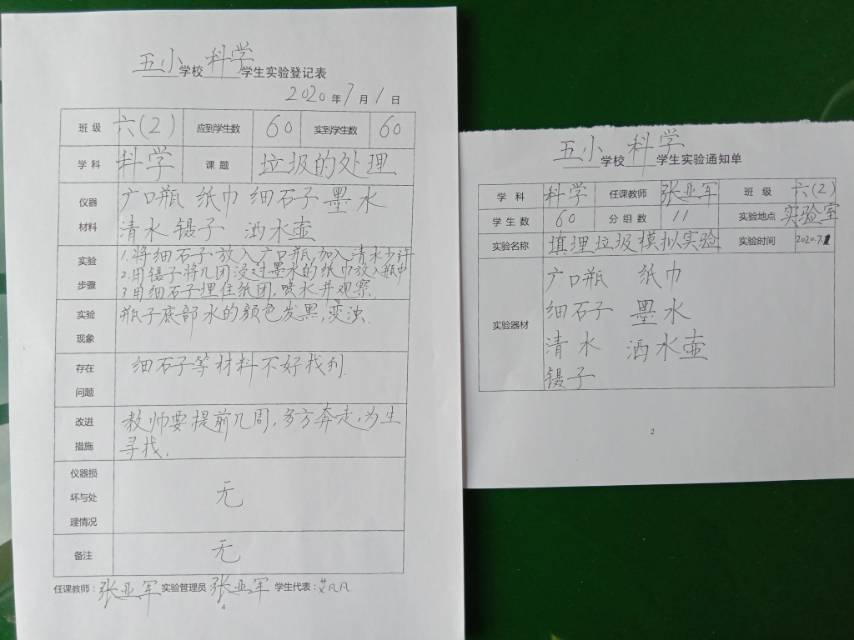 五小学校 科学 学生实验登记表
2020年7月1日
班级 六(2) 应到学生数 60 实到学生数 60
学科 科学 课题 垃圾的处理
仪器材料 广口瓶 纸巾 细石子 墨水
清水 镊子 洒水壶
实验步骤 1.将细石子放入广口瓶,加入清水少许
2.用镊子将几团浸过墨水的纸巾放入瓶中
3.用细石子埋住纸团,喷水并观察.
实验现象 瓶子底部水的颜色发黑,变浊.
存在问题 细石子等材料不好找到.
改进措施 教师要提前几周,多方奔走,为生
寻找.
仪器损坏与处理情况 无
备注 无
任课教师:张亚军 实验管理员 张亚军 学生代表:
4
五小学校 科学 学生实验通知单
学科 科学 任课教师 张亚军 班级 六(2)
学生数 60 分组数 11 实验地点 实验室
实验名称 填埋垃圾模拟实验 实验时间 2020.7.1
实验器材 广口瓶 纸巾
细石子 墨水
清水 洒水壶
镊子
2